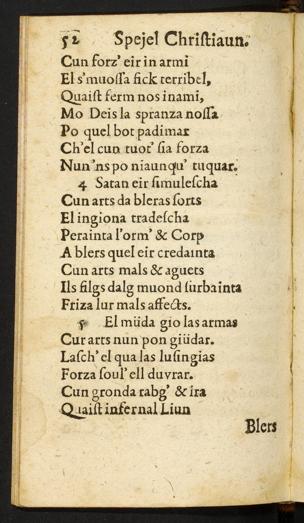 52 Spejel Christiaun.
Cun forz' eir in armi
El s'muossa fick terribel,
Quaist ferm nos inami,
Mo Deis la spranza nossa
Po quel bot padimar
Ch'el cun tuot' sia forza
Nun'ns po niaunqu' tuquar.
4 Satan eir simulescha
Cun arts da bleras sorts
El ingiona tradescha
Perainta l'orm' & Corp
A blers quel eir credainta
Cun arts mals & aguets
Ils filgs dalg muond surbainta
Friza lur mals affects.
5 El müda gio las armas
Cur arts nun pon giüdar.
Lasch' el qua las lusingias
Forza soul' ell duvrar.
Cun gronda rabg' & ira
Quaist infernal Liun
Blers